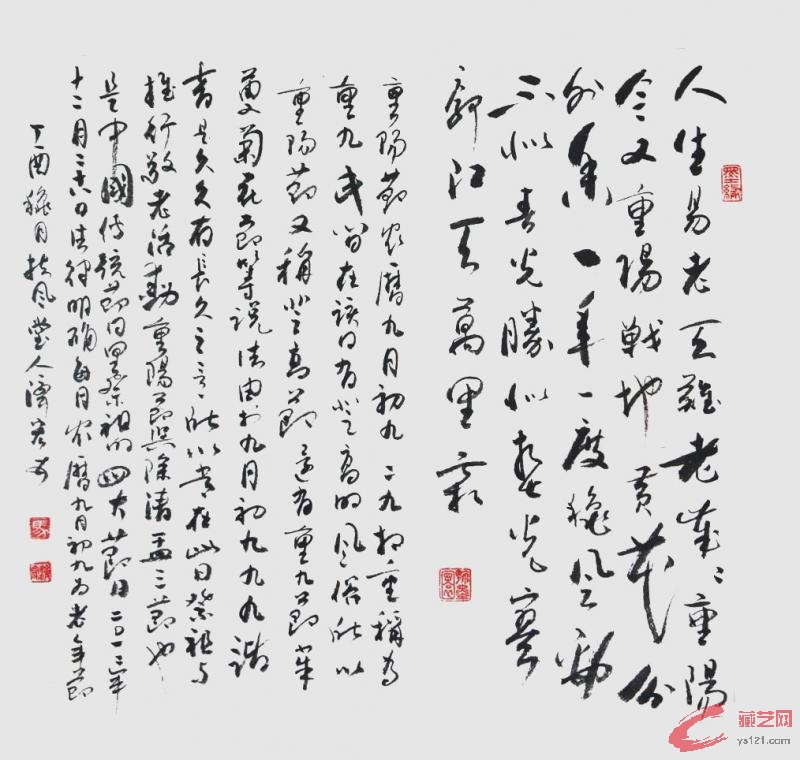 人生易老天難老歲〻重陽
今又重陽戰地黃花分
外香一年一度穐風勁
不似春光勝似春光寥
廓江天萬里霜
重陽節農曆九月初九二九相重稱為
重九民間在該日有登高的風俗所以
重陽節又稱登高節還有重九節茱
萸菊花節等說法由於九月初九九九諧
音是久久有長久之意所以常在此日祭祖与
推行敬老活動重陽節與除清盂三節也
是中國傳統節日里祭祖的四大節日二〇一二年
十二月二十八日法律明確每月農曆九月初九為老年節
丁酉穐月扶風堂人濟
馬
藏艺网
ys121.com